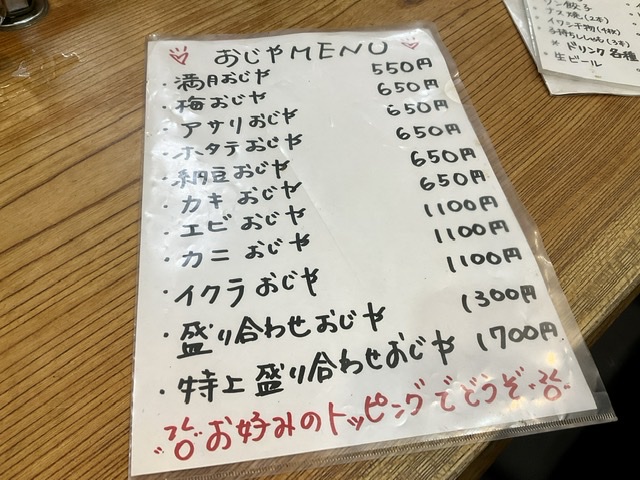 おじやMENU
・満月おじや 550円
・梅おじや 650円
・アサリおじや 650円
・ホタテおじや 650円
・納豆おじや 650円
・カキ おじや 650円
・エビ おじや 1100円
・カニ おじや 1100円
・イクラおじや 1100円
・盛り合わせおじや 1300円
・特上 盛り合わせおじや 1700円
お好みのトッピングでどうぞ
餃子
・ナス焼(2本)
・イワシ干物(4枚)
子持ちししゃも(3本)
※ ドリンク各種
・生ビール